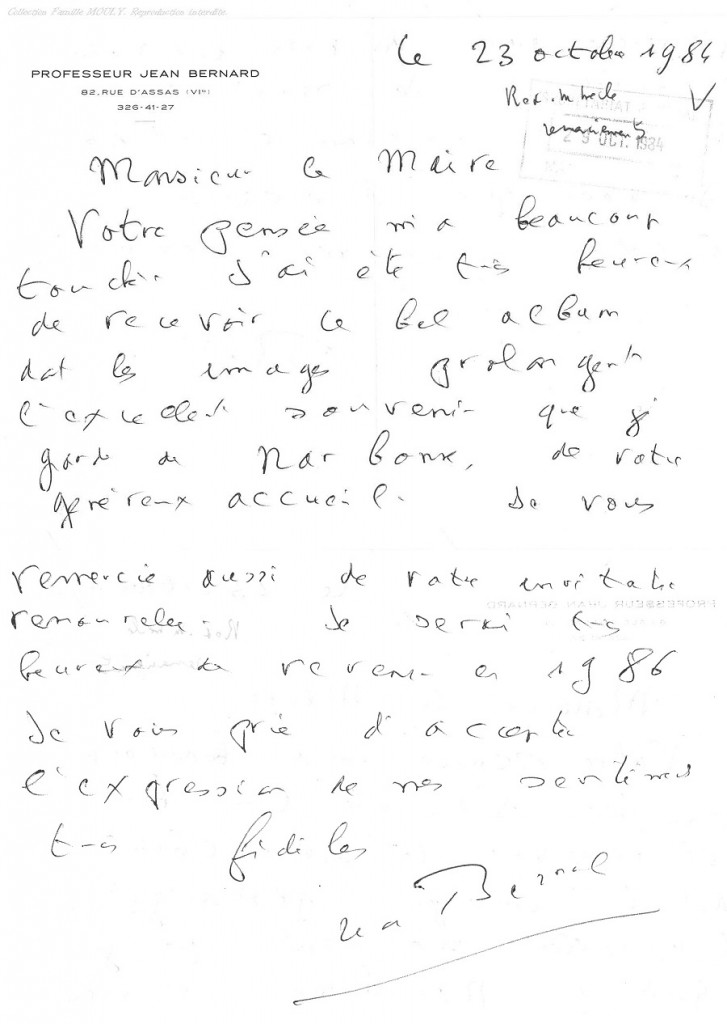 Collection Famille MOULY. Reproduction interdite.
PROFESSEUR JEAN BERNARD
82, RUE D'ASSAS (VIe)
326-41-27
le 23 octobre 1984
V
remerciements
29 OCT. 1984
Monsieur le Maire
Votre pensée m'a beaucoup
touché. J'ai été très heureux
de recevoir ce bel album
dont les images prolongent
l'excellent souvenir que je
garde de Narbonne, de votre
généreux accueil. Je vous
remercie aussi de votre invitation
renouvelée. Je serai très
heureux de revenir en 1986
Je vous prie d'accepter
l'expression de mes sentiments
très fidèles
Jean Bernard